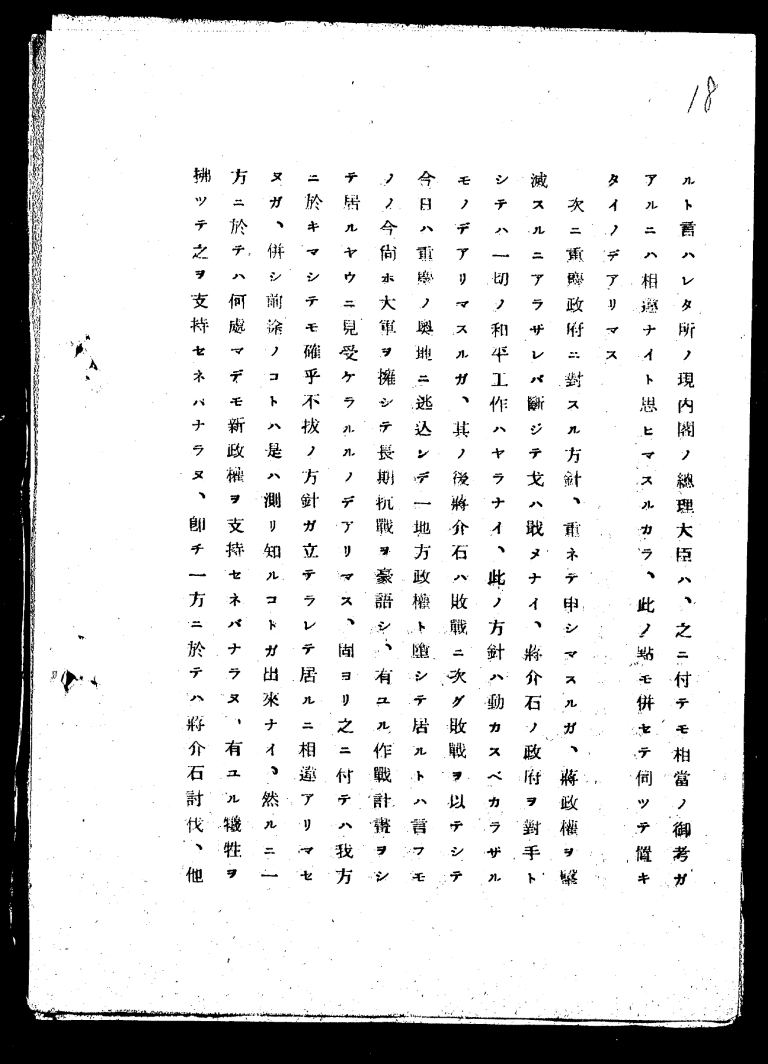 18
ルト言ハレタ所ノ現内閣ノ總理大臣ハ、之ニ付テモ相當ノ御考ガ
アルニハ相違ナイト思ヒマスルカラ、此ノ點モ併セテ伺ツテ置キ
タイノデアリマス
次ニ重慶政府ニ對スル方針、重ネテ申シマスルガ、蔣政權ヲ擊
滅スルニアラザレバ斷ジテ戈ハ戢メナイ、蔣介石ノ政府ヲ對手ト
シテハ一切ノ和平工作ハヤラナイ、此ノ方針ハ動カスベカラザル
モノデアリマスルガ、其ノ後蔣介石ハ敗戰ニ次グ敗戰ヲ以テシテ
今日ハ重慶ノ奧地ニ逃込ンデ一地方政權ト墮シテ居ルトハ言フモ
ノノ今尙ホ大軍ヲ擁シテ長期抗戰ヲ豪語シ、有ユル作戰計畫ヲシ
テ居ルヤウニ見受ケラルルノデアリマス、固ヨリ之ニ付テハ我方
ニ於キマシテモ確乎不拔ノ方針ガ立テラレテ居ルニ相違アリマセ
ヌガ、併シ前途ノコトハ是ハ測リ知ルコトガ出來ナイ、然ルニ一
方ニ於テハ何處マデモ新政權ヲ支持セネバナラヌ、有ユル犧牲ヲ
拂ツテ之ヲ支持セネバナラヌ、卽チ一方ニ於テハ蔣介石討伐、他